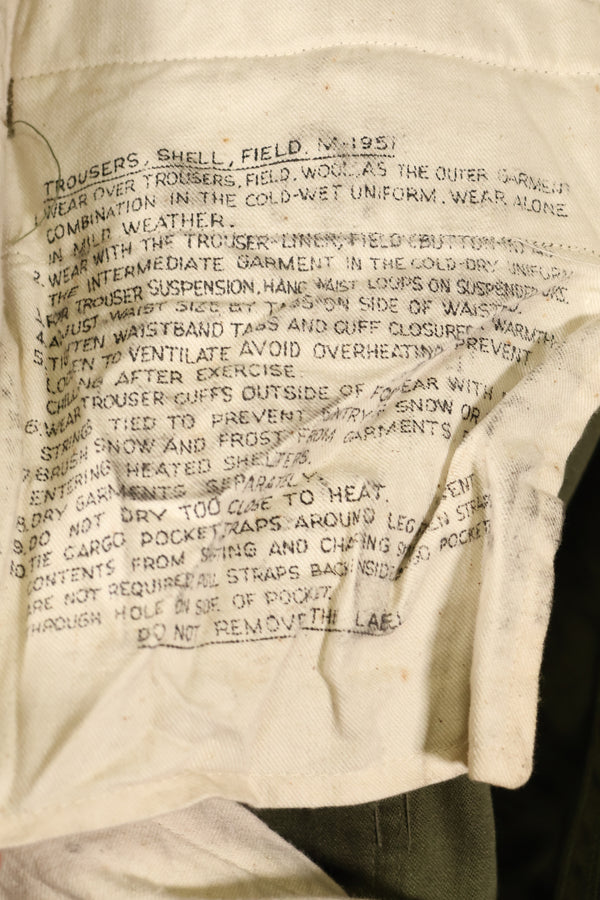 TROUSERS, SHELL, FIELD, M-1951
1. WEAR OVER TROUSERS, FIELD, WOOL, AS THE OUTER GARMENT
COMBINATION IN THE COLD-WET UNIFORM. WEAR ALONE
IN MILD WEATHER.
2. WEAR WITH THE TROUSER LINER, FIELD (BUTTON IN) AS
THE INTERMEDIATE GARMENT IN THE COLD-DRY UNIFORM
FOR TROUSER SUSPENSION, HANG WAIST LOOPS ON SUSPENDERS.
4. ADJUST WAIST SIZE BY TABS ON SIDE OF
5. TIGHTEN WAISTBAND TABS AND CUFF CLOSURES WARMTH
LOOSEN TO VENTILATE AVOID OVERHEATING PREVENT
CHILLING AFTER EXERCISE.
6. WEAR TROUSER CUFFS OUTSIDE OF WITH
STRINGS TIED TO PREVENT ENTRY SNOW OR
7. BRUSH SNOW AND FROST FROM GARMENTS
ENTERING HEATED SHELTERS.
8. DRY GARMENTS SEPARATELY
9. DO NOT DRY TOO CLOSE TO HEAT.
10. TIE CARGO POCKET STRAPS AROUND LEG
CONTENTS FROM AND CHAFING POCKET
ARE NOT REQUIRED STRAPS BACK INSIDE
THROUGH HOLE ON SIDE OF POCKET.
DO NOT REMOVE THIS LABEL